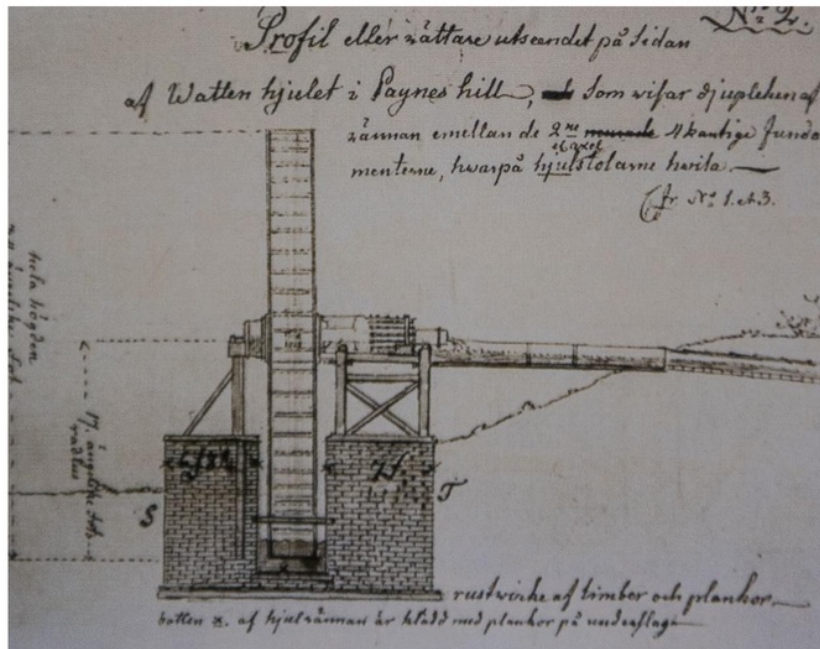 No 2.
Profil eller rättare utseendet på Sidan
af Watten hjulet i Paynes hill, som wisar djupleken af
rännan emellan de 2ne 4kantige funda
el. axel
menterne, hwarpå hjulstolarne hwila.—
Cfr. No 1. et 3.
hela högden
17. ängelske fots
radius
S
T
rustwirke af timber och plankor
botten x. af hjulrännan är klädd med plankor på underslag